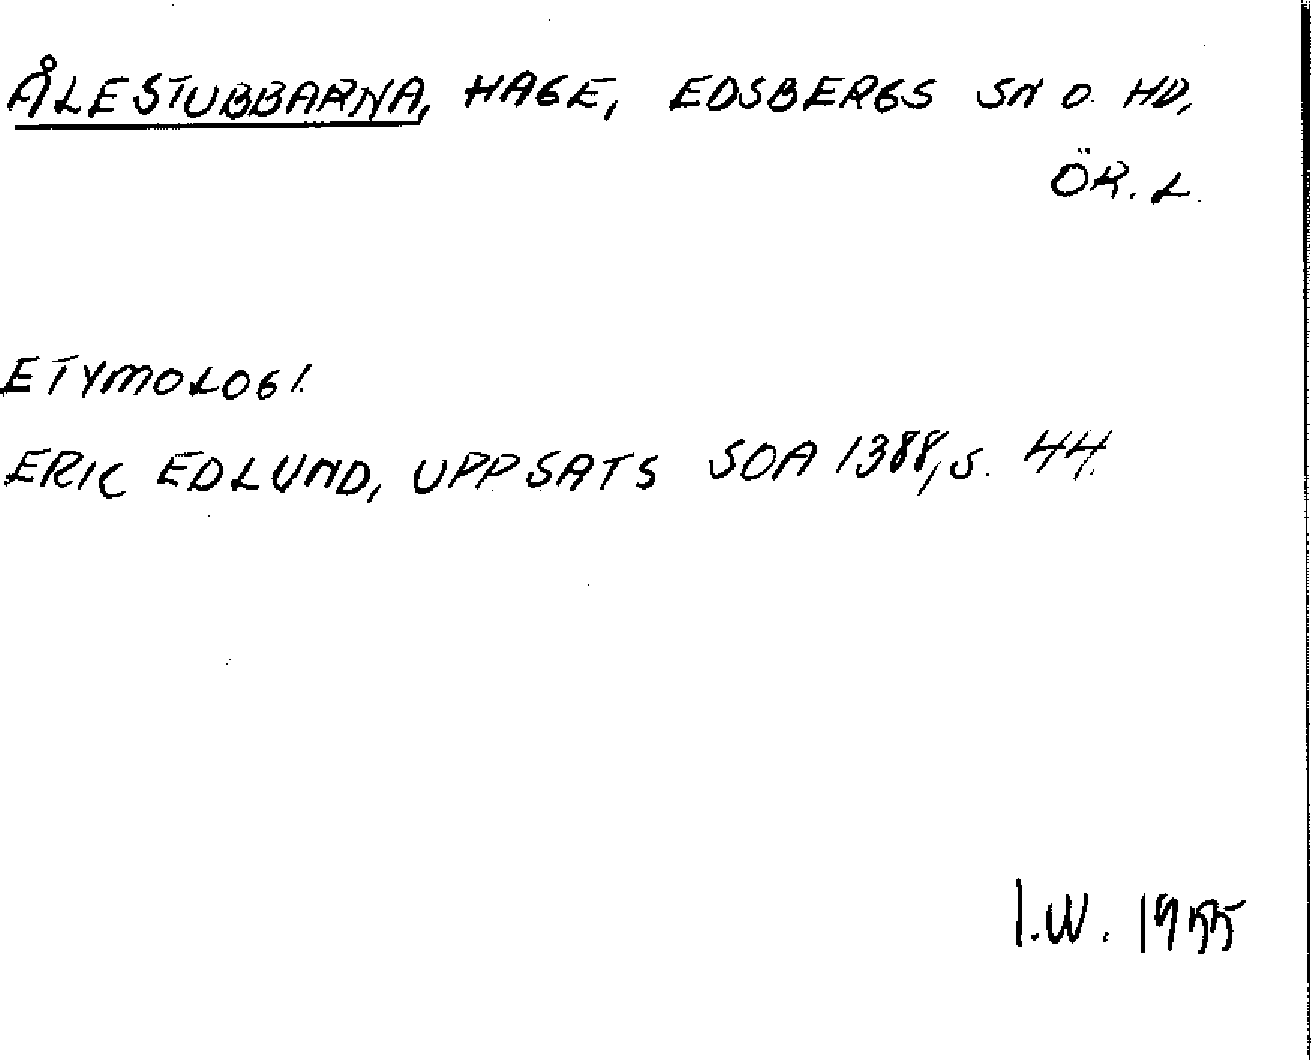 ÅLESTUBBARNA, HAGE, EDSBERGS SN O. HD,
ÖR. L.
ETYMOLOGI.
ERIC EDLUND, UPPSATS SOA 1388, S. 44.
I.W. 1955